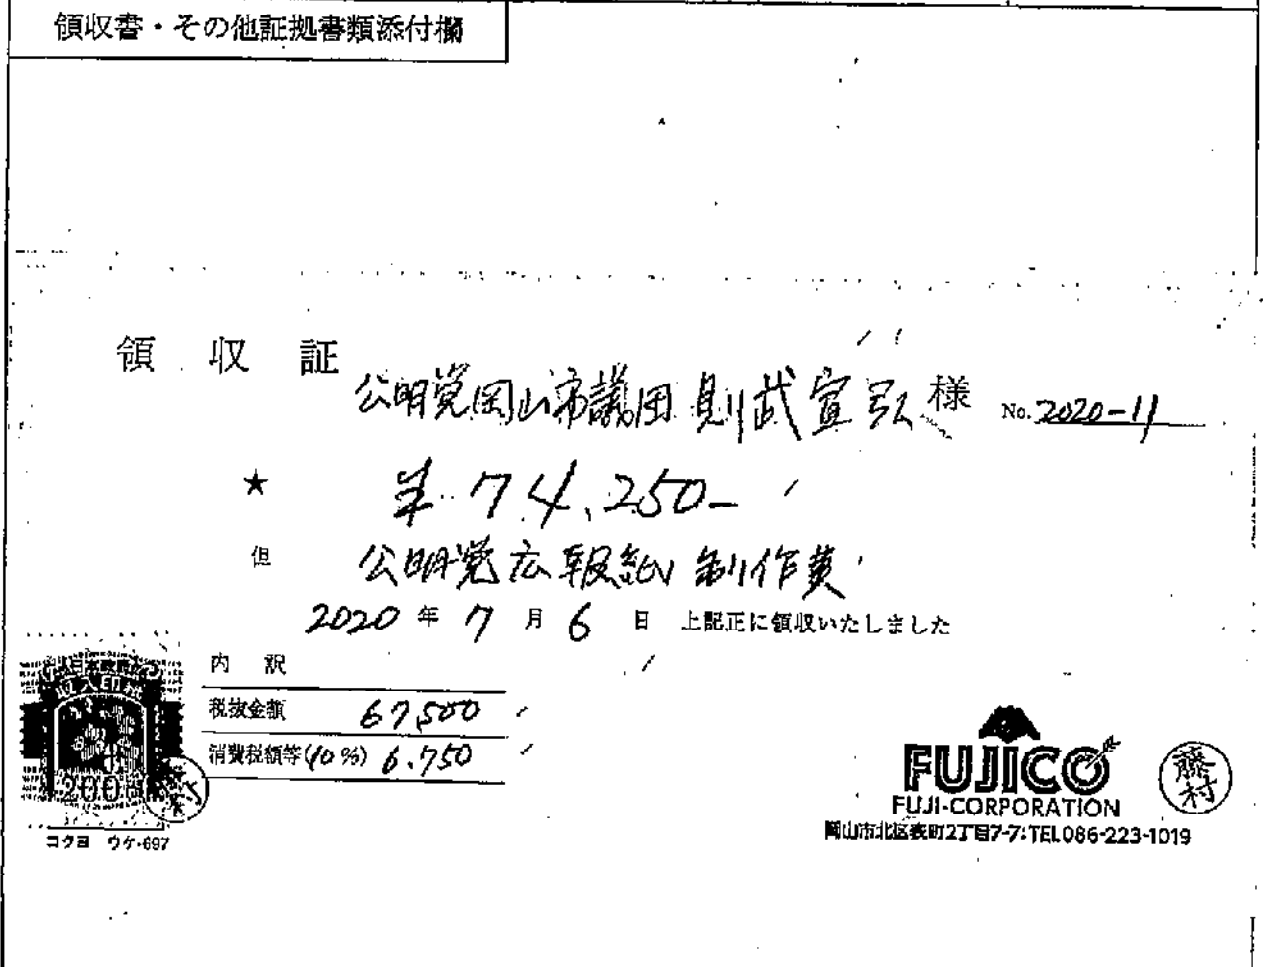 領収書・その他証拠書類添付欄
領収証
公明党岡山市議団 則武宣弘 様 No. 2020-11
★ ¥74,250-
但 公明党広報紙制作費
2020年7月6日 上記正に領収いたしました
内訳
税抜金額 67,500
消費税額等(10%) 6,750
日本政府
収入印紙
200円
コクヨ ウケ-697
FUJICO
FUJI-CORPORATION
岡山市北区表町2丁目7-7:TEL086-223-1019
藤村